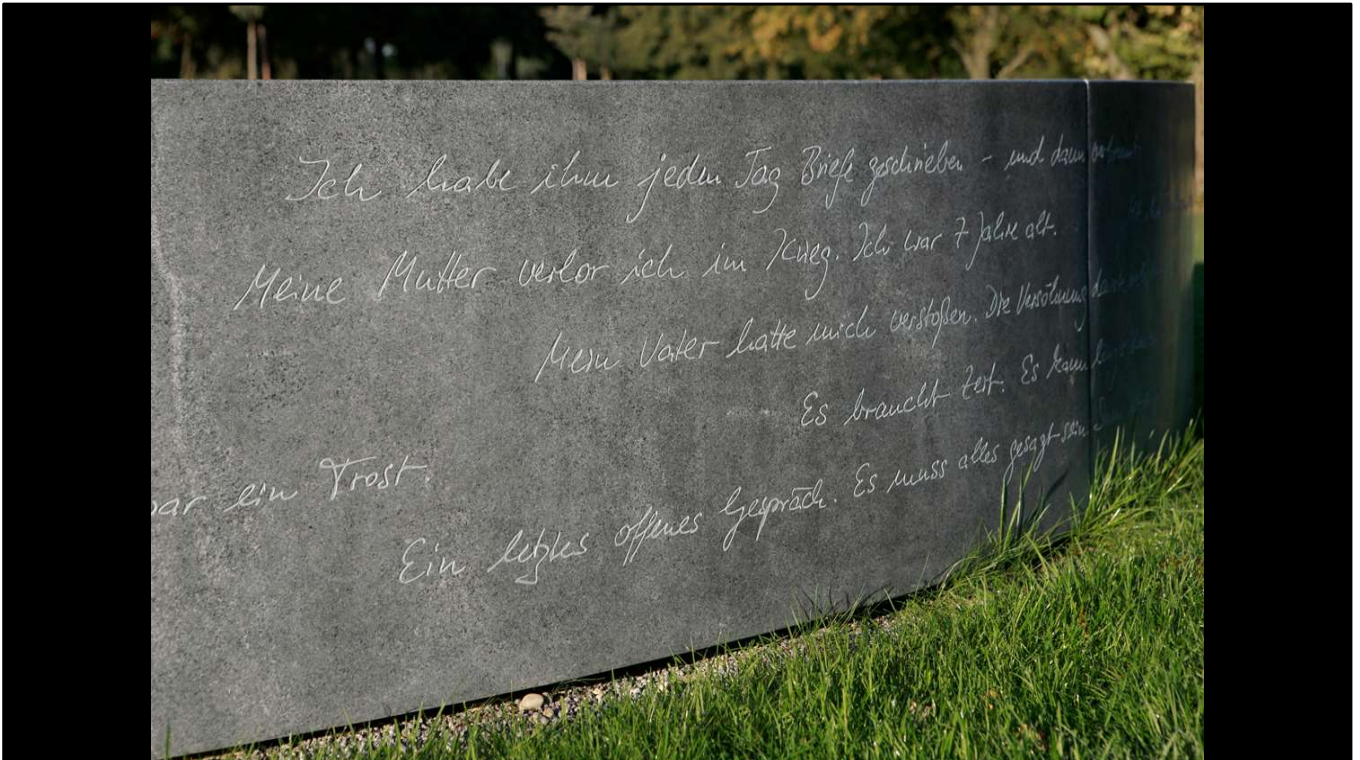 Ich habe ihm jeden Tag Briefe geschrieben - und dann
Meine Mutter verlor ich im Krieg. Ich war 7 Jahre alt.
Mein Vater hatte mich verstoßen. Die Versöhnung
Es braucht Zeit. Es kann
ein Trost.
Ein letztes offenes Gespräch. Es muss alles gesagt sein